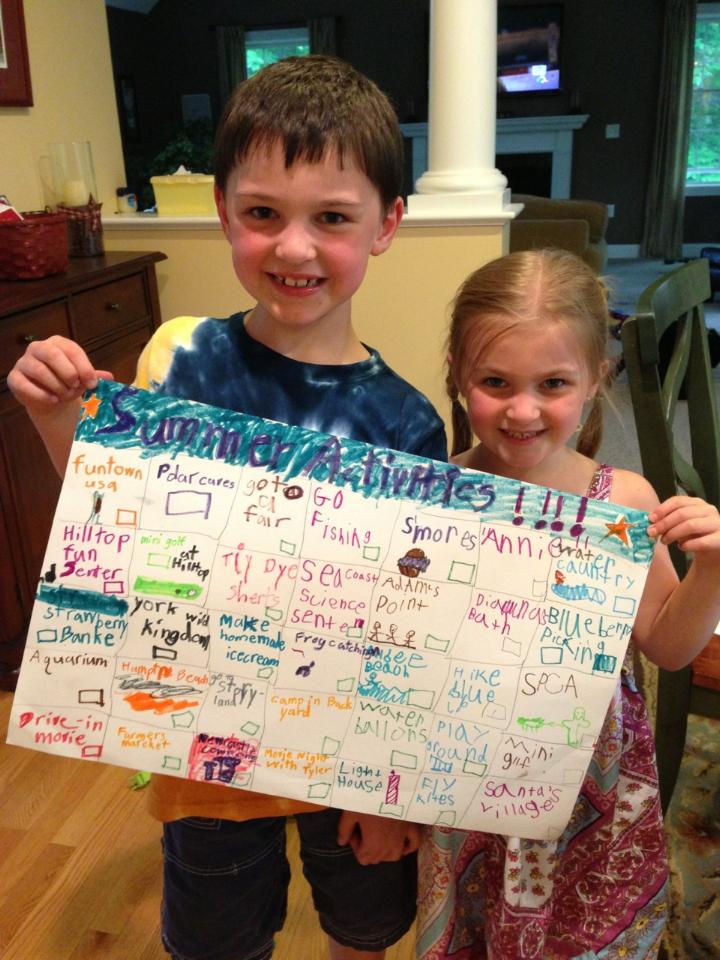 Summer Activities!!!!
funtown
usa
Pdarcures
goto
a
fair
GO
Fishing
S'mores
'Annie'
cauntry
Hilltop
fun
Senter
mini golf
at
Hilltop
Tiy Dye
Sherts
Seacoast
Science
senter
Adams
Point
Bath
Blueberry
Picking
Strawberry
Banke
york wild
kingdom
Make
homemade
icecream
Frog catching
Beach
Hike
blue
SPCA
Aquarium
Hampton Beach
story
land
camp in Back
yard
water
ballons
Play
ground
mini
Drive-in
movie
Farmers
market
Newcastle
Movie Night
with Tyler
Light
House
Fly
kites
Santa's
village